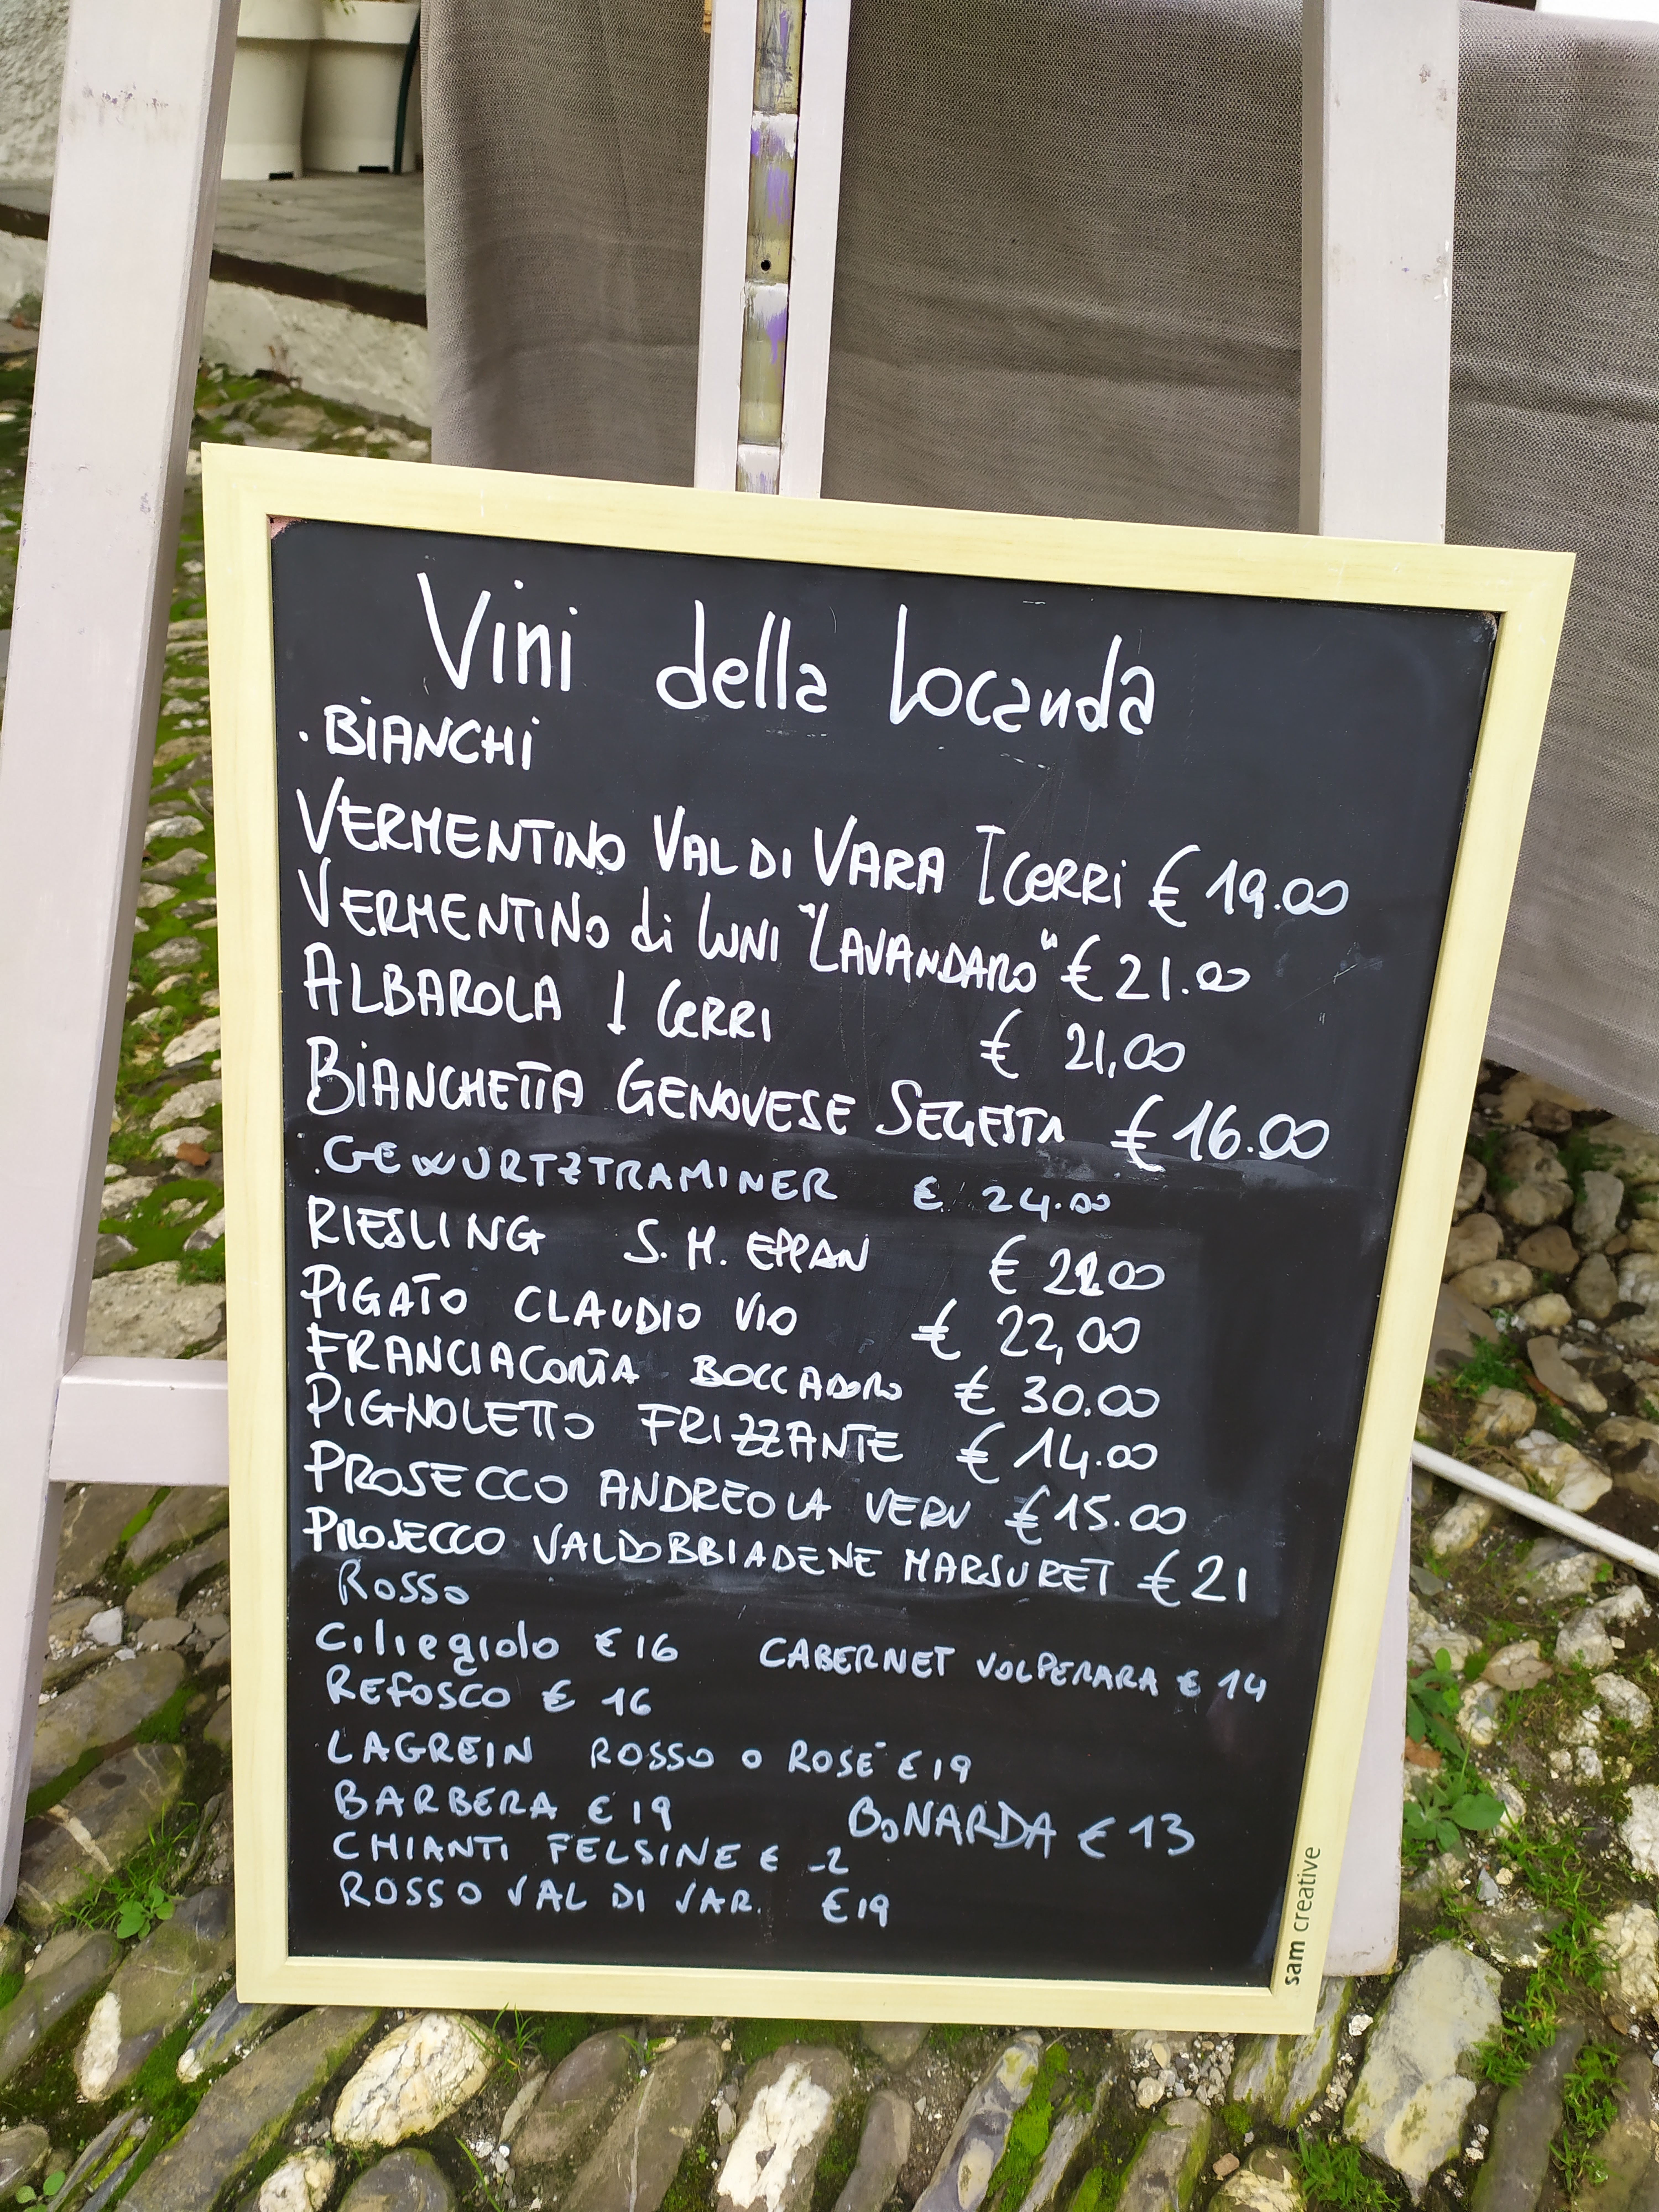 Vini della Locanda
. BIANCHI
VERMENTINO VAL DI VARA I CERRI € 19.00
VERMENTINO di LUNI "LAVANDARO" € 21.00
ALBAROLA I CERRI € 21,00
BIANCHETTA GENOVESE SEGESTA € 16.00
. GEWURTZTRAMINER € 24.00
RIESLING S. M. EPPAN €
PIGATO CLAUDIO VIO € 22,00
FRANCIACORTA BOCCADORO € 30.00
PIGNOLETTO FRIZZANTE € 14.00
PROSECCO ANDREOLA VERV € 15.00
PROSECCO VALDOBBIADENE MARSURET € 21
ROSSO
Ciliegiolo € 16 CABERNET VOLPERARA € 14
REFOSCO € 16
LAGREIN ROSSO O ROSE' € 19
BARBERA € 19 BONARDA € 13
CHIANTI FELSINE €
ROSSO VAL DI VAR. € 19
sam creative